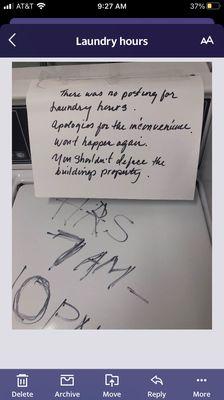 AT&T
9:27 AM
37%
Laundry hours
AA
There was no posting for
laundry hours.
Apologies for the inconvenience.
Won't happen again.
You shouldn't deface the
buildings property.
HRS
7AM-
10PM
Delete
Archive
Move
Reply
More